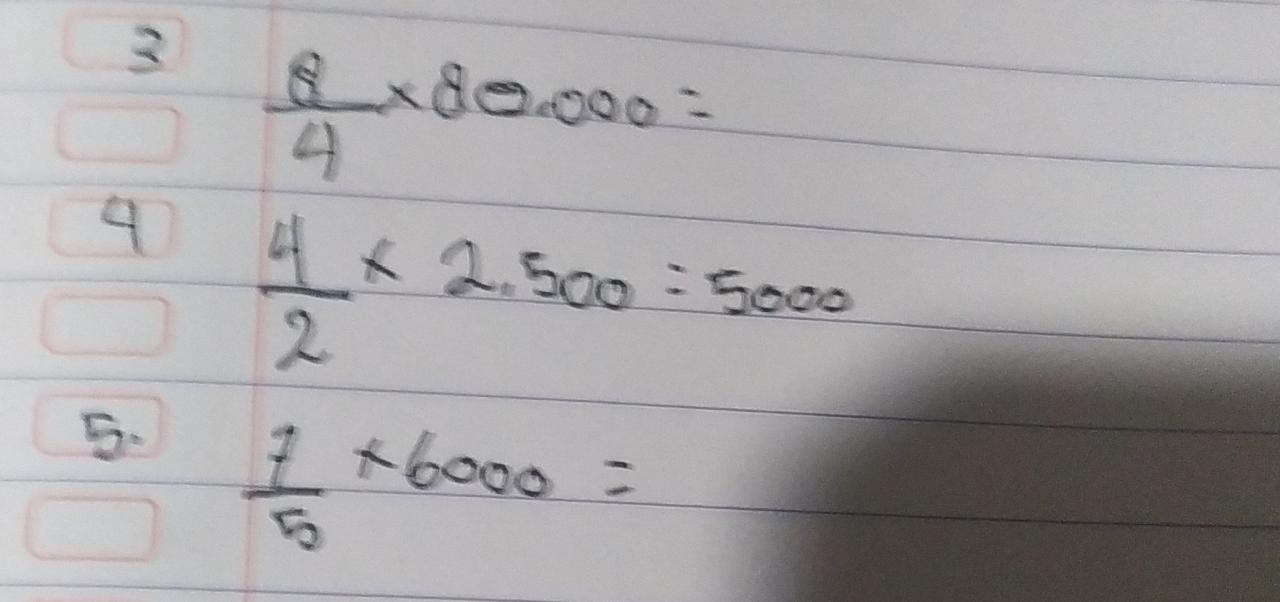 3 8/4 × 80.000 =
4 4/2 × 2.500 = 5000
5. 7/5 × 6000 =